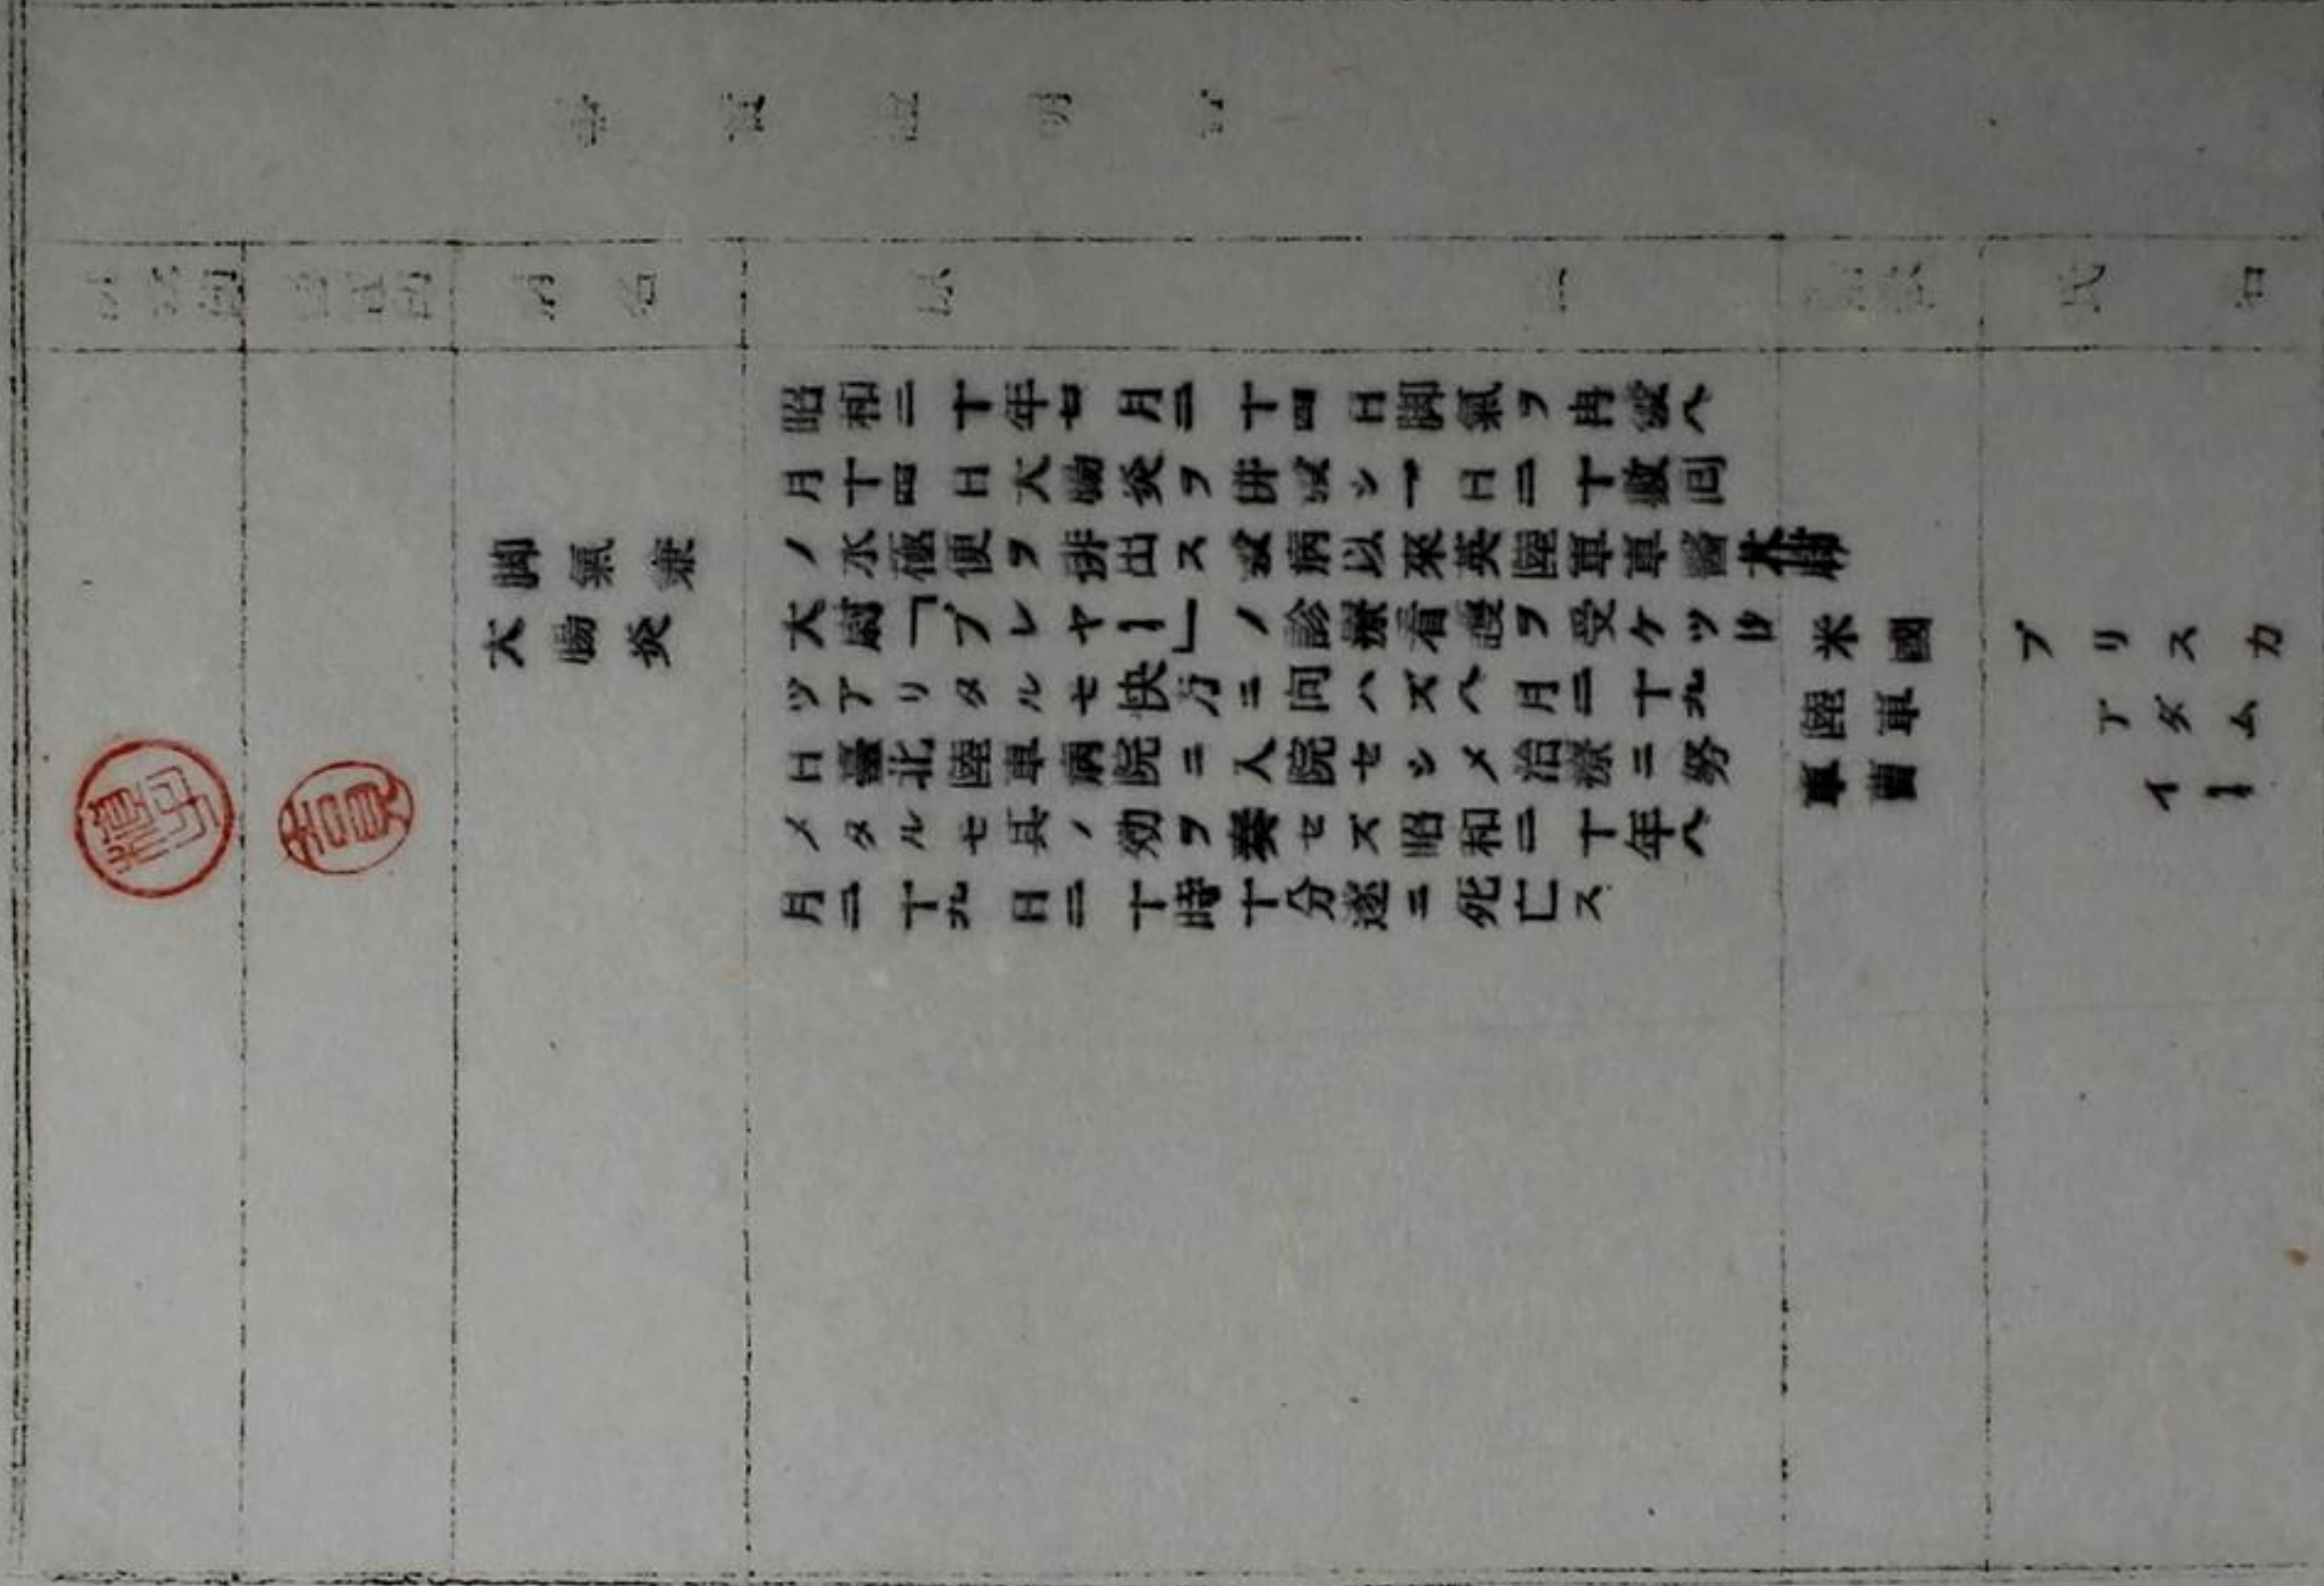 事實證明書
氏名
プリスカ
アダム
イー
米國
陸軍
軍曹
昭和二十年七月二十四日脚氣ヲ再發八
月十四日大腸炎ヲ併發シ一日二十數回
ノ水樣便ヲ排出ス發病以來英陸軍軍醫
大尉「ブレヤー」ノ診療看護ヲ受ケツ
ツアリタルモ快方ニ向ハズ八月二十九
日臺北陸軍病院ニ入院セシメ治療ニ努
メタルモ其ノ効ヲ奏セズ昭和二十年八
月二十九日二十時十分遂ニ死亡ス
病名
脚氣兼
大腸炎